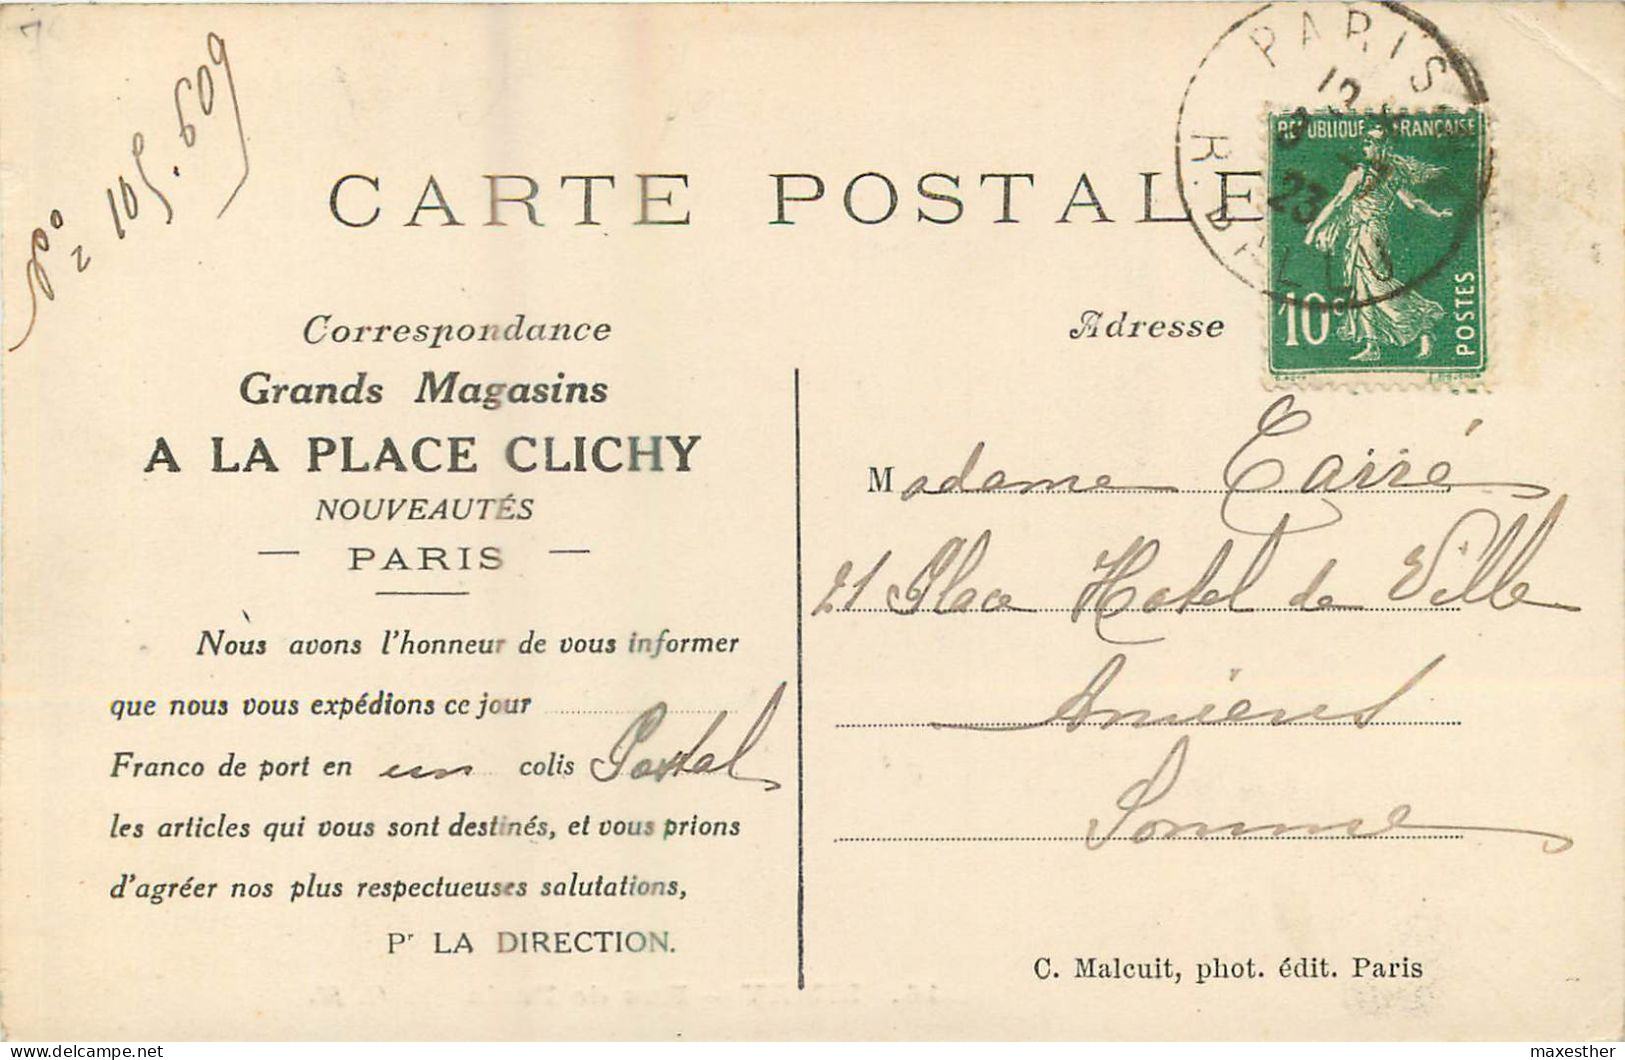 N° 2 105.609
CARTE POSTALE
PARIS
23
R. BALLU
REPUBLIQUE FRANÇAISE
10c
POSTES
Correspondance
Adresse
Grands Magasins
A LA PLACE CLICHY
NOUVEAUTÉS
— PARIS —
Nous avons l'honneur de vous informer
que nous vous expédions ce jour
Franco de port en un colis Postal
les articles qui vous sont destinés, et vous prions
d'agréer nos plus respectueuses salutations,
Pr LA DIRECTION.
Madame Carré
21 Place Hotel de Ville
Amiens
Somme
C. Malcuit, phot. édit. Paris
delcampe.net
maxesther